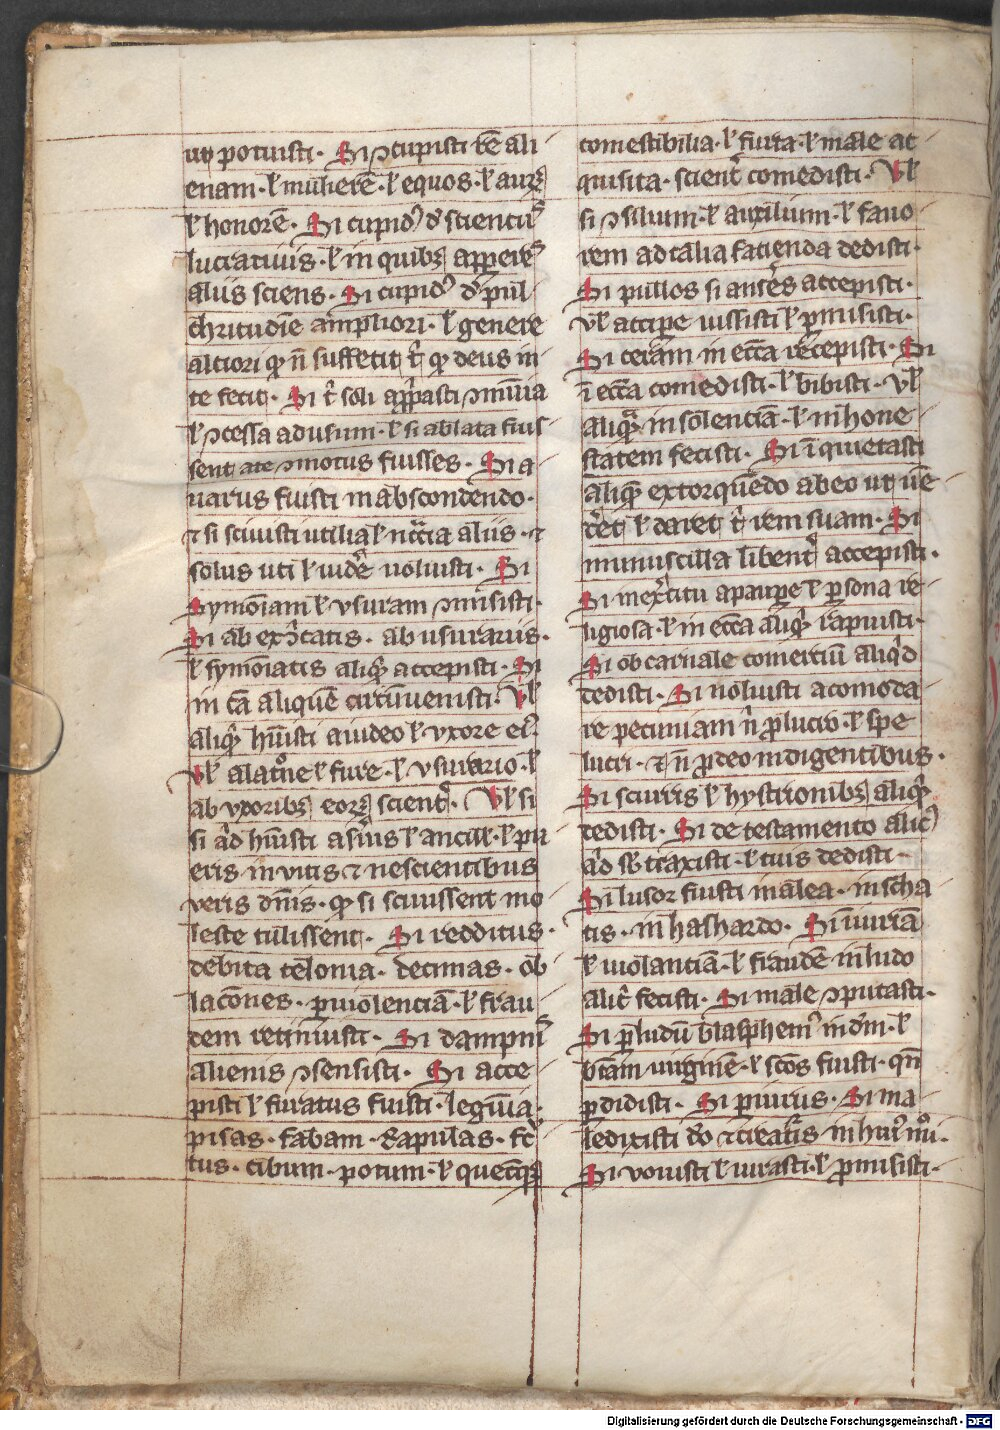 ut potuisti. Si ɔcupisti rē ali
enam. ł mulierē. ł equos. ł auꝝ
ł honorē. Si cupidꝰ de scienciis
lucratiuis. ł in quibꝫ apperes
aliis sciens. Si cupidꝰ de pul
chritudīe ampliori. ł genere
altiori qꝫ nō suffecit tͥ qꝫ deus in
te fecit. Si tͥ soli apᵖasti ɔmūnia
ł ɔcessa ad usum. ł si ablata fuis
sent a te ɔmotus fuisses. Si a
uarus fuisti in abscondendo.
⁊ si sciuisti utilia ł nccͣia aliis. ⁊
solus uti ł uidēe noluisti. Si
Symoniam ł vsuram ɔmisisti.
Si ab exɔ̄icatis. ab usurariis.
ł symōiatis aliqͥ accepisti. Si
in cā aliquē circūuenisti. Vł
aliqͥ hūisti a iudeo ł vxore eiꝰ.
Vł a latrōne ł fure. ł vsurario. ł
ab vxoribꝫ eorꝝ scienter. Vł si
si qͥd hūisti a suis ł ancil. ł pu
eris inuitis ⁊ nescientibus
veris dn̄is. qꝫ si sciuissent mo
leste tulissent. Si redditus.
debita telonia. decimas. ob
laōnes. ꝑ uiolenciā. ł frau
dem retinuisti. Si dampnis
alienis ɔsensisti. Si acce
pisti ł furatus fuisti. legūia.
pisas. fabam. ⁊ rapulas. fruc
tus. cibum. potum. ł quecūqꝫ
comestibilia. ł furta. ł male ac
quisita. scienter comedisti. Vł
si ɔsilium. ł auxilium. ł fauo
rem ad talia facienda dedisti.
Si pullos si anseres accepisti.
vł accipe iussisti ł ꝑmisisti.
Si ceram in ecca recepisti. Si
ī ecca comedisti. ł bibisti. vł
aliqͣ insolenciā. ł inhone
statem fecisti. Si īquietasti
aliquē extorquēdo ab eo ut uē
deret ł daret tͥ rem suam. Si
munuscilla libenter accepisti.
Si in exercitu a pauꝑe ł ꝑsona re
ligiosa. ł in ecca aliqͥ rapuisti.
Si ob carnale comerciū aliqͥd
dedisti. Si noluisti acomoda
re pecuniam nͥ ꝓ lucro. ł spe
lucri. ⁊ nō ꝓ deo indigentibus.
Si scurris ł hystrionibꝫ aliqͥd
dedisti. Si de testamento alicꝰ
qͥd subtraxisti. ł tuis dedisti.
Si lusor fuisti in alea. in scha
tis. in hashardo. Si iniuriā
ł uiolanciā. ł fraudē in ludo
alicͥ fecisti. Si male ɔputasti.
Si ꝑ ludū blasphemꝰ in dm̄. ł
btām uirginē. ł scōs fuisti. qn̄
ꝑdidisti. Si ꝑiurus. Si ma
ledixisti deo ⁊ creaturis in huiꝰmōi.
Si vouisti ł iurasti. ł ꝓmisisti.
Digitalisierung gefördert durch die Deutsche Forschungsgemeinschaft - DFG